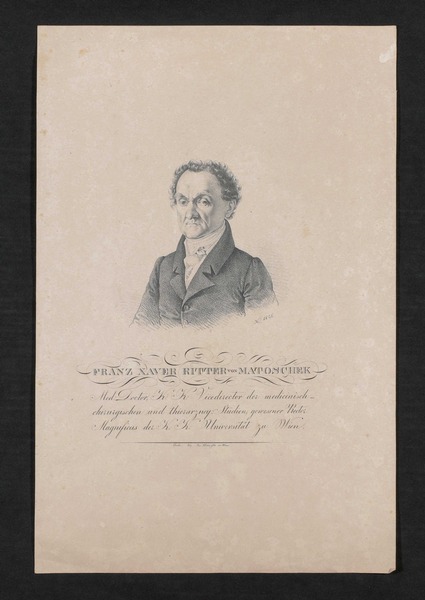 FRANZ XAVER RITTER VON MATOSCHEK
Med. Doctor, K. K. Vicedirector der medicinisch-
chirurgischen und thierarzney: Studien, gewesener
Magnificus der K. K. Universität zu Wien.